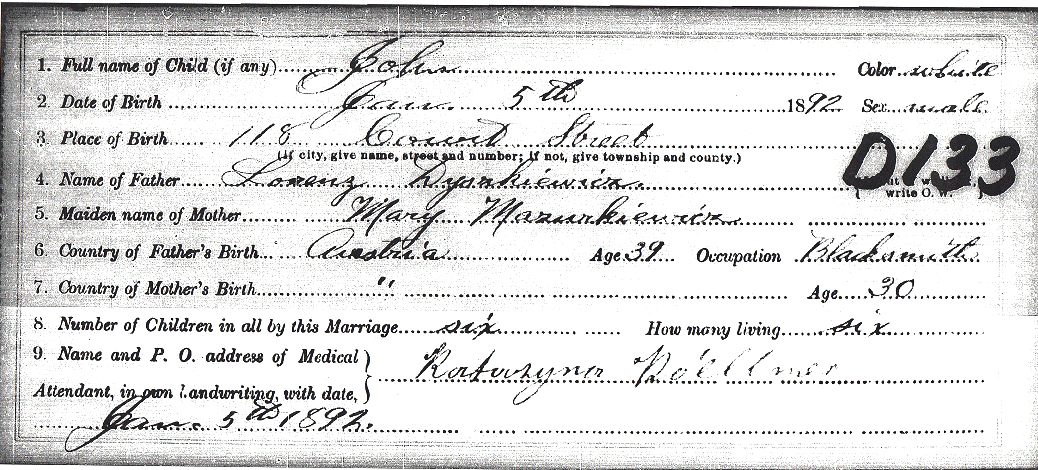 1. Full name of Child (if any) John Color white
2. Date of Birth Jan. 5th 1892 Sex male
3. Place of Birth 118 Court Street
(If city, give name, street and number; if not, give township and county.)
D133
4. Name of Father Lorenz Dyszkiewicz.
write O. W.
5. Maiden name of Mother Mary Mazurkiewicz
6. Country of Father's Birth Austria Age 39 Occupation Blacksmith
7. Country of Mother's Birth " Age 30
8. Number of Children in all by this Marriage six How many living six
9. Name and P. O. address of Medical
Attendant, in own handwriting, with date,
Katarzyna
Jan. 5th 1892.